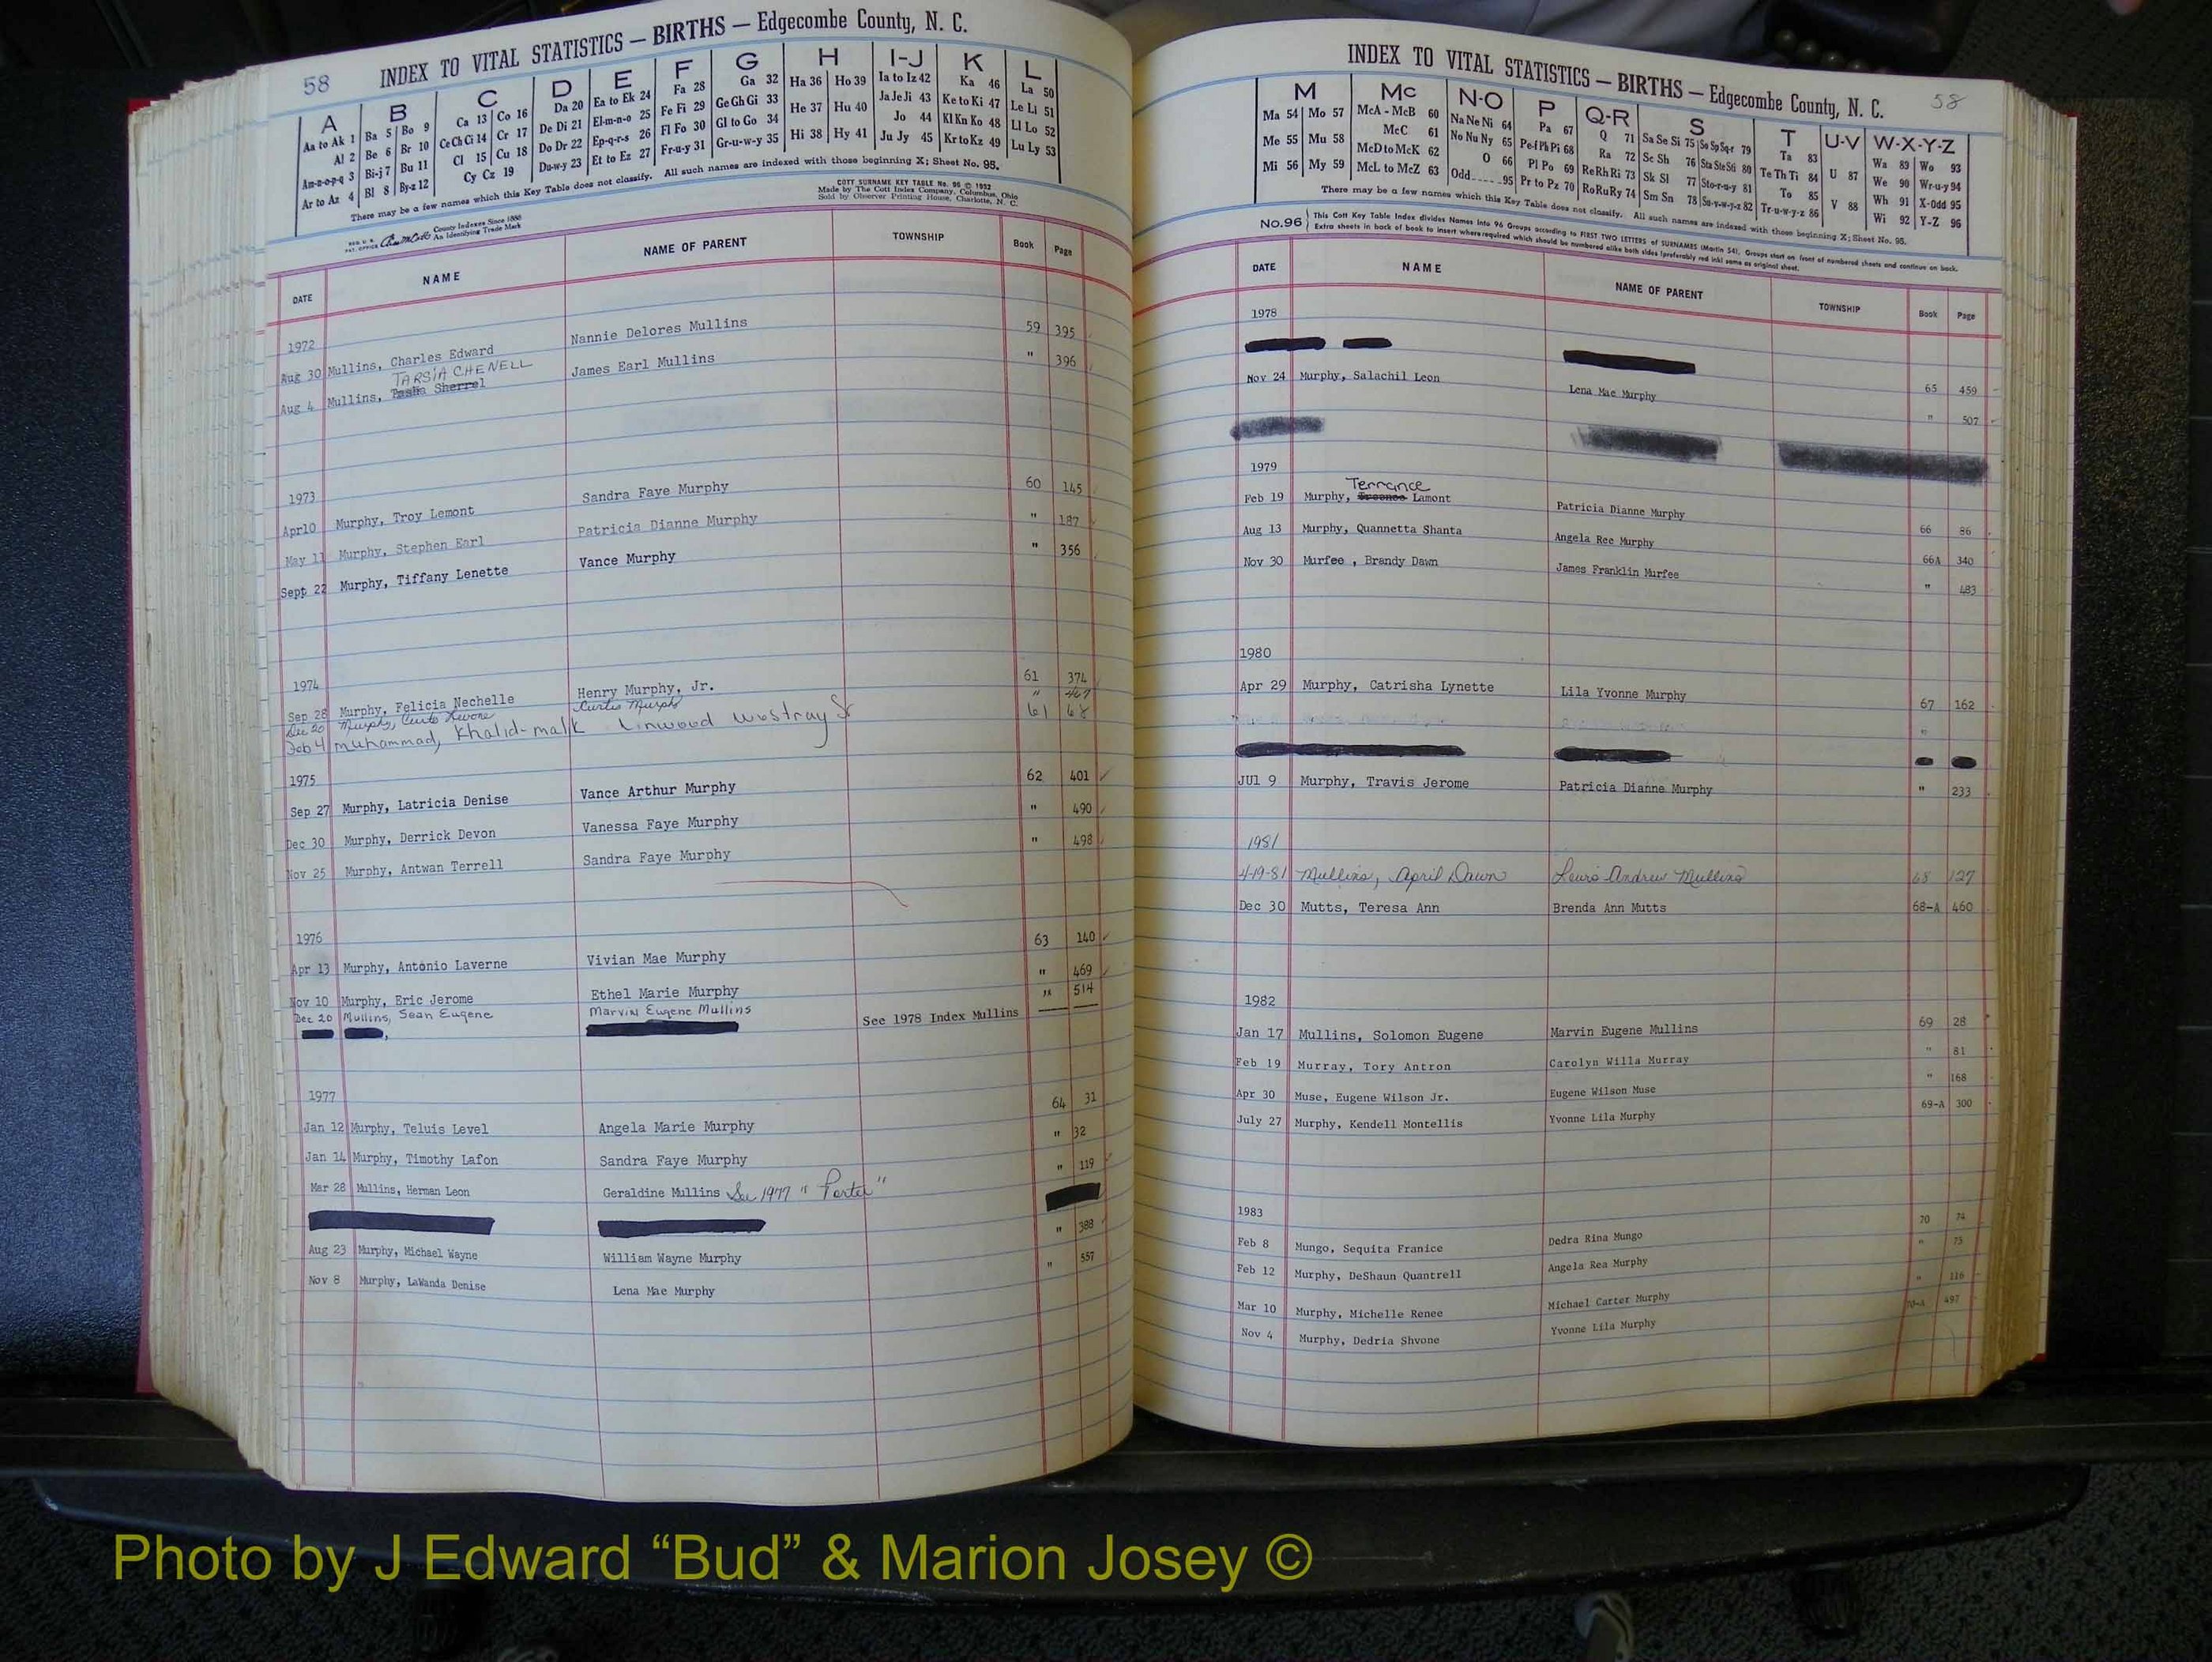 58
INDEX TO VITAL STATISTICS — BIRTHS — Edgecombe County, N. C.
A B C D E F G H I-J K L
Aa to Ak 1 Ba 5 Bo 9 Ca 13 Co 16 Da 20 Ea to Ek 24 Fa 28 Ga 32 Ha 36 Ho 39 Ia to Iz 42 Ka 46 La 50
Al 2 Be 6 Br 10 Ce Ch Ci 14 Cr 17 De Di 21 El-m-n-o 25 Fe Fi 29 Ge Gh Gi 33 He 37 Hu 40 Ja Je Ji 43 Ke to Ki 47 Le Li 51
Am-n-o-p-q 3 Bi-j 7 Bu 11 Cl 15 Cu 18 Do Dr 22 Ep-q-r-s 26 Fl Fo 30 Gl to Go 34 Hi 38 Hy 41 Jo 44 Kl Kn Ko 48 Ll Lo 52
Ar to Az 4 Bl 8 By-z 12 Cy Cz 19 Du-w-y 23 Et to Ez 27 Fr-u-y 31 Gr-u-w-y 35 Ju Jy 45 Kr to Kz 49 Lu Ly 53
There may be a few names which this Key Table does not classify. All such names are indexed with those beginning X; Sheet No. 95.
COTT SURNAME KEY TABLE No. 96 © 1952
Made by The Cott Index Company, Columbus, Ohio
Sold by Observer Printing House, Charlotte, N. C.
County Indexes Since 1888
An Identifying Trade Mark
DATE NAME NAME OF PARENT TOWNSHIP Book Page
1972
Aug 30 Mullins, Charles Edward Nannie Delores Mullins 59 395
TARSIA CHENELL
Aug 4 Mullins, Sherrel James Earl Mullins " 396
1973
Apr10 Murphy, Troy Lemont Sandra Faye Murphy 60 145
May 11 Murphy, Stephen Earl Patricia Dianne Murphy " 187
Sept 22 Murphy, Tiffany Lenette Vance Murphy " 356
1974
Sep 28 Murphy, Felicia Nechelle Henry Murphy, Jr. 61 374
Dec 20 Murphy, Curtis Curtis Murphy " 467
Feb 4 muhammad, Khalid-malik Linwood westray Sr 61 68
1975
Sep 27 Murphy, Latricia Denise Vance Arthur Murphy 62 401
Dec 30 Murphy, Derrick Devon Vanessa Faye Murphy " 490
Nov 25 Murphy, Antwan Terrell Sandra Faye Murphy " 498
1976
Apr 13 Murphy, Antonio Laverne Vivian Mae Murphy 63 140
Nov 10 Murphy, Eric Jerome Ethel Marie Murphy " 469
Dec 20 Mullins, Sean Eugene Marvin Eugene Mullins " 514
See 1978 Index Mullins
1977
Jan 12 Murphy, Teluis Level Angela Marie Murphy 64 31
Jan 14 Murphy, Timothy Lafon Sandra Faye Murphy " 32
Mar 28 Mullins, Herman Leon Geraldine Mullins See 1977 "Porter" " 119
Aug 23 Murphy, Michael Wayne William Wayne Murphy " 388
Nov 8 Murphy, LaWanda Denise Lena Mae Murphy " 557
INDEX TO VITAL STATISTICS — BIRTHS — Edgecombe County, N. C. 58
M Mc N-O P Q-R S T U-V W-X-Y-Z
Ma 54 Mo 57 McA - McB 60 Na Ne Ni 64 Pa 67 Q 71 Sa Se Si 75 So Sp Sq-r 79 Ta 83 U 87 Wa 89 Wo 93
Me 55 Mu 58 McC 61 No Nu Ny 65 Pe-f Ph Pi 68 Ra 72 Sc Sh 76 Sta Ste Sti 80 Te Th Ti 84 V 88 We 90 Wr-u-y 94
Mi 56 My 59 McD to McK 62 O 66 Pl Po 69 Re Rh Ri 73 Sk Sl 77 Sto-r-u-y 81 To 85 Wh 91 X-Odd 95
McL to McZ 63 Odd 95 Pr to Pz 70 Ro Ru Ry 74 Sm Sn 78 Su-v-w-y-z 82 Tr-u-w-y-z 86 Wi 92 Y-Z 96
There may be a few names which this Key Table does not classify. All such names are indexed with those beginning X; Sheet No. 95.
No.96 This Cott Key Table Index divides Names into 96 Groups according to FIRST TWO LETTERS of SURNAMES (Martin 54). Groups start on front of numbered sheets and continue on back.
Extra sheets in back of book to insert where required which should be numbered alike both sides (preferably red ink) same as original sheet.
DATE NAME NAME OF PARENT TOWNSHIP Book Page
1978
65 459
Nov 24 Murphy, Salachil Leon Lena Mae Murphy " 507
1979
Terrance
Feb 19 Murphy, Lamont Patricia Dianne Murphy 66 86
Aug 13 Murphy, Quannetta Shanta Angela Ree Murphy 66A 340
Nov 30 Murfee , Brandy Dawn James Franklin Murfee " 483
1980
Apr 29 Murphy, Catrisha Lynette Lila Yvonne Murphy 67 162
"
JUl 9 Murphy, Travis Jerome Patricia Dianne Murphy " 233
1981
4-19-81 Mullins, April Dawn Lewis Andrew Mullins 68 127
Dec 30 Mutts, Teresa Ann Brenda Ann Mutts 68-A 460
1982
Jan 17 Mullins, Solomon Eugene Marvin Eugene Mullins 69 28
Feb 19 Murray, Tory Antron Carolyn Willa Murray " 81
Apr 30 Muse, Eugene Wilson Jr. Eugene Wilson Muse " 168
July 27 Murphy, Kendell Montellis Yvonne Lila Murphy 69-A 300
1983
Feb 8 Mungo, Sequita Franice Dedra Rina Mungo 70 74
Feb 12 Murphy, DeShaun Quantrell Angela Rea Murphy " 75
Mar 10 Murphy, Michelle Renee Michael Carter Murphy " 116
Nov 4 Murphy, Dedria Shvone Yvonne Lila Murphy 70-A 497
Photo by J Edward “Bud” & Marion Josey ©